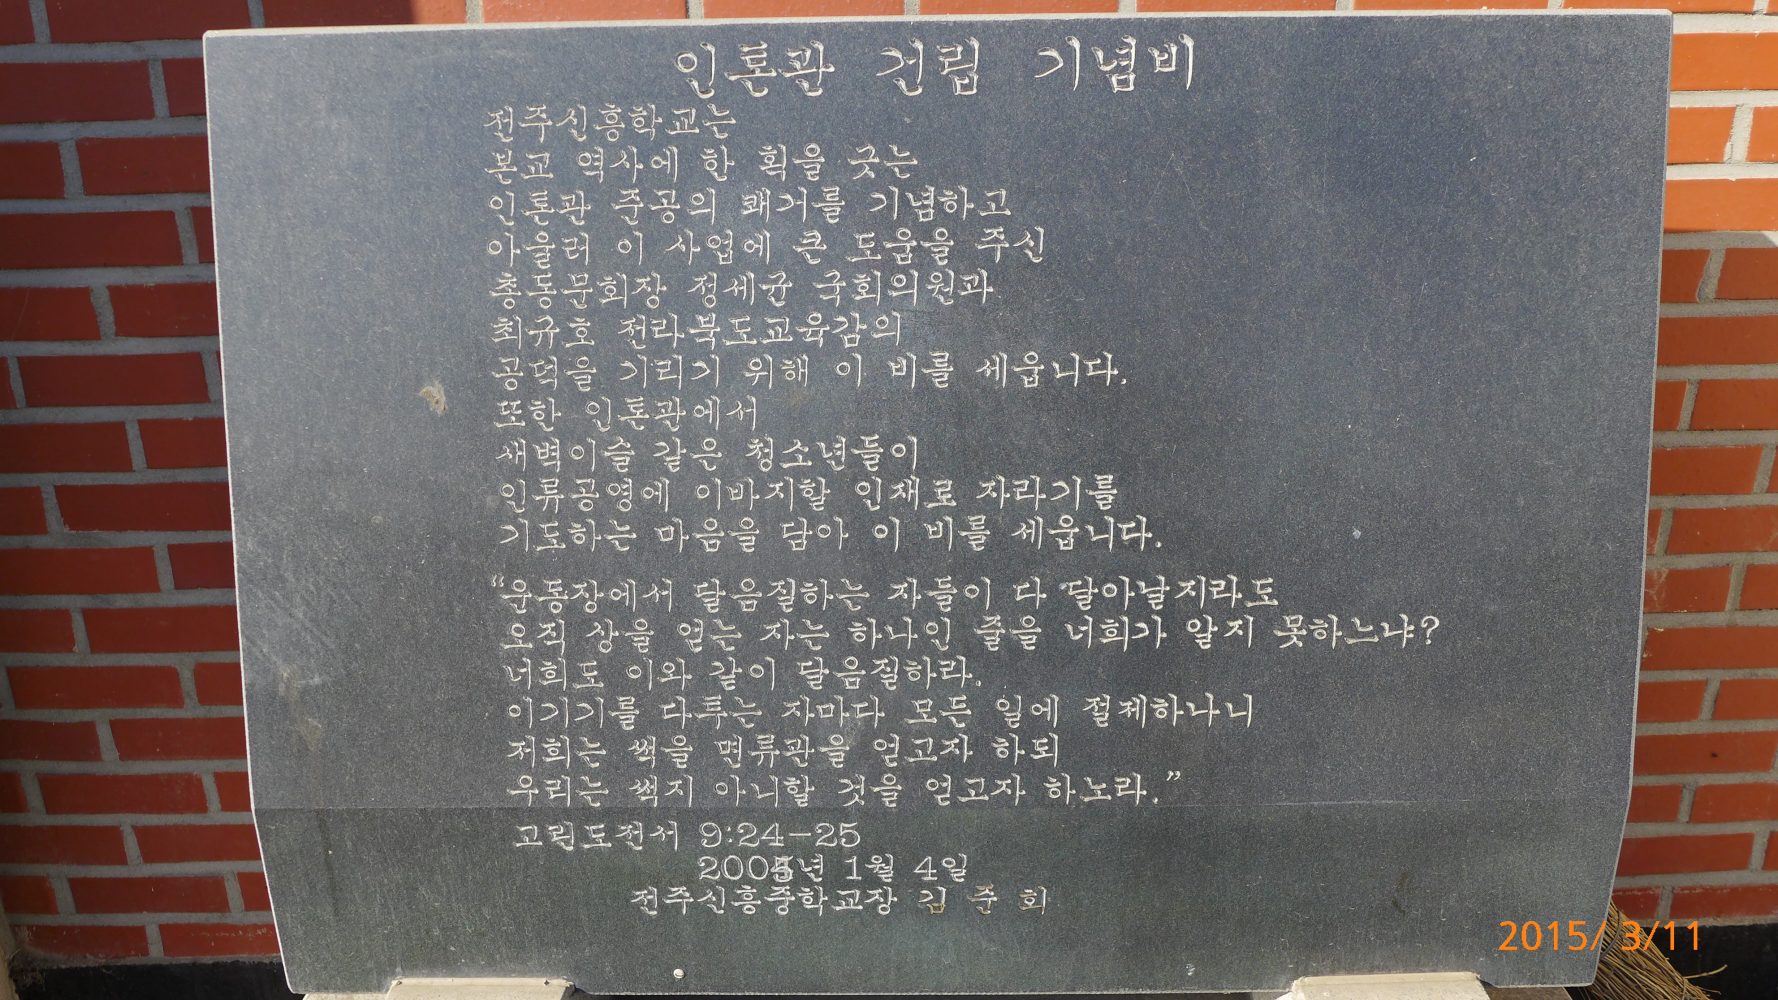 인톤관 건립 기념비
전주신흥학교는
본교 역사에 한 획을 긋는
인톤관 준공의 쾌거를 기념하고
아울러 이 사업에 큰 도움을 주신
총동문회장 정세균 국회의원과
최규호 전라북도교육감의
공덕을 기리기 위해 이 비를 세웁니다.
또한 인톤관에서
새벽이슬 같은 청소년들이
인류공영에 이바지할 인재로 자라기를
기도하는 마음을 담아 이 비를 세웁니다.
“운동장에서 달음질하는 자들이 다 달아날지라도
오직 상을 얻는 자는 하나인 줄을 너희가 알지 못하느냐?
너희도 이와 같이 달음질하라.
이기기를 다투는 자마다 모든 일에 절제하나니
저희는 썩을 면류관을 얻고자 하되
우리는 썩지 아니할 것을 얻고자 하노라.”
고린도전서 9:24-25
1월 4일
전주신흥중학교장 김 준 회
2015/ 3/11